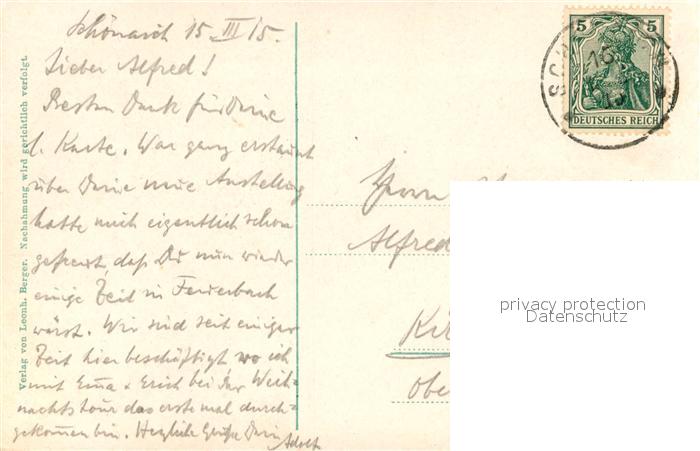 Schönaich 15. III 15.
Lieber Alfred!
Besten Dank für Deine
l. Karte. War ganz erstaunt
über Deine neue Anstellung
hatte mich eigentlich schon
gefreut, daß Du nun wieder
einige Zeit in Feuerbach
wärst. Wir sind seit einiger
Zeit hier beschäftigt wo ich
mit Em̄a + Erich bei der Weih-
nachtstour das erste mal durch-
gekom̄en bin. Herzliche Grüße Dein
Adolf
Verlag von Leonh. Berger. Nachahmung wird gerichtlich verfolgt.
5 5
DEUTSCHES REICH
Herrn
Alfred
privacy protection
Datenschutz